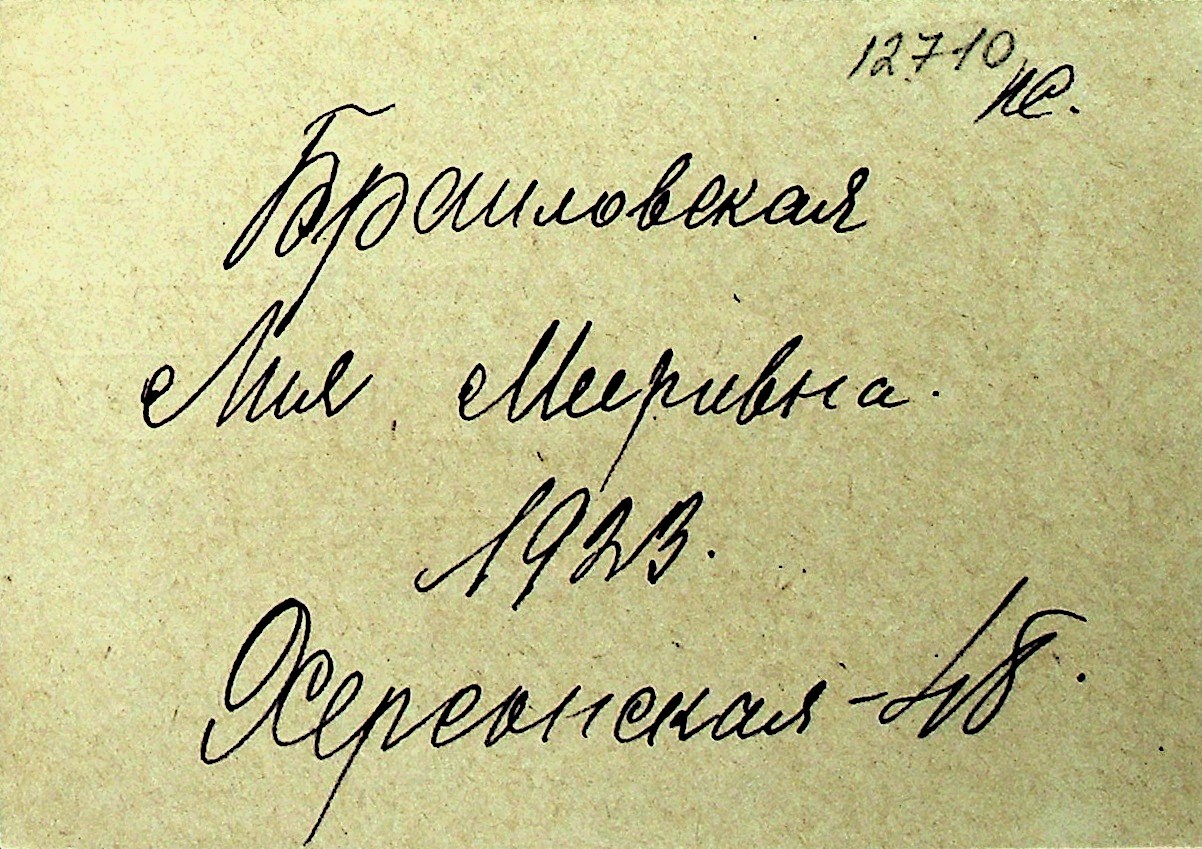 12710
нс.
Браиловская
Лия Мееривна.
1923.
Херсонская - 48.